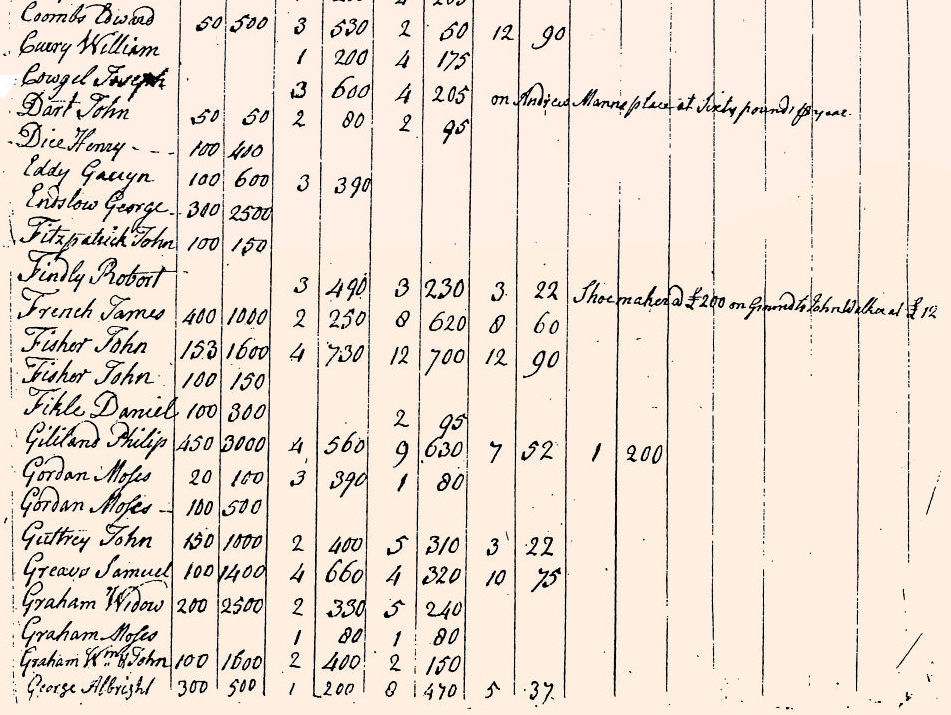 Coombs Edward 50 500 3 530 2 50 12 90
Curry William 1 200 4 175
Cowgel Joseph 3 600 4 205 on Andrew Manns place at Sixty pounds p year
Dart John 50 50 2 80 2 95
Dice Henry - - - 100 400
Eddy Gauyn 100 600 3 390
Endslow George 300 2500
Fitzpatrick John 100 150
Findly Robort 3 490 3 230 3 22 Shoemaker a £200 on Ground to John Walker at £12
French James 400 1000 2 250 8 620 8 60
Fisher John 153 1600 4 730 12 700 12 90
Fisher John 100 150
Fikle Daniel 100 300 2 95
Gililand Philip 450 3000 4 560 9 630 7 52 1 200
Gordan Moses 20 100 3 390 1 80
Gordan Moses - 100 500
Guttrey John 150 1000 2 400 5 310 3 22
Greavs Samuel 100 1400 4 660 4 320 10 75
Graham Widow 200 2500 2 330 5 240
Graham Moses 1 80 1 80
Graham Wm & John 100 1600 2 400 2 150
George Albright 300 500 1 200 8 470 5 37